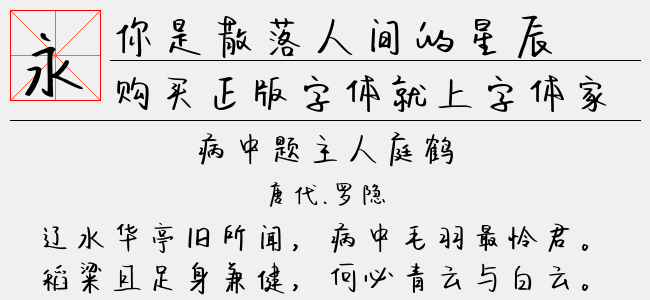 永
你是散落人间的星辰
购买正版字体就上字体家
病中题主人庭鹤
唐代.罗隐
辽水华亭旧所闻，病中毛羽最怜君。
稻粱且足身兼健，何必青云与白云。